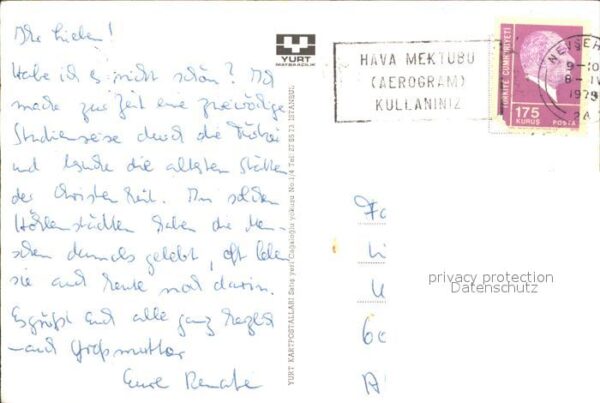 Ihr Lieben!
Habe ich es nicht schön? Ich
mache zur Zeit eine zweiwöchige
Studienreise durch die Türkei
und lerne die ältesten Stätten
der Christenheit. In solchen
Höhlenstädten haben die Men-
schen damals gelebt, oft leben
sie auch heute noch darin.
Es grüßt Euch alle ganz herzlich
- auch Großmutter
Eure Renate
YURT
MATBAACILIK
YURT KARTPOSTALLARI Satış yeri: Cağaloğlu yokuşu No:1/4 Tel: 27 55 73 İSTANBUL
HAVA MEKTUBU
(AEROGRAM)
KULLANINIZ
TÜRKİYE CUMHURİYETİ
175
KURUŞ POSTA
NEVŞEH
1979
privacy protection
Datenschutz